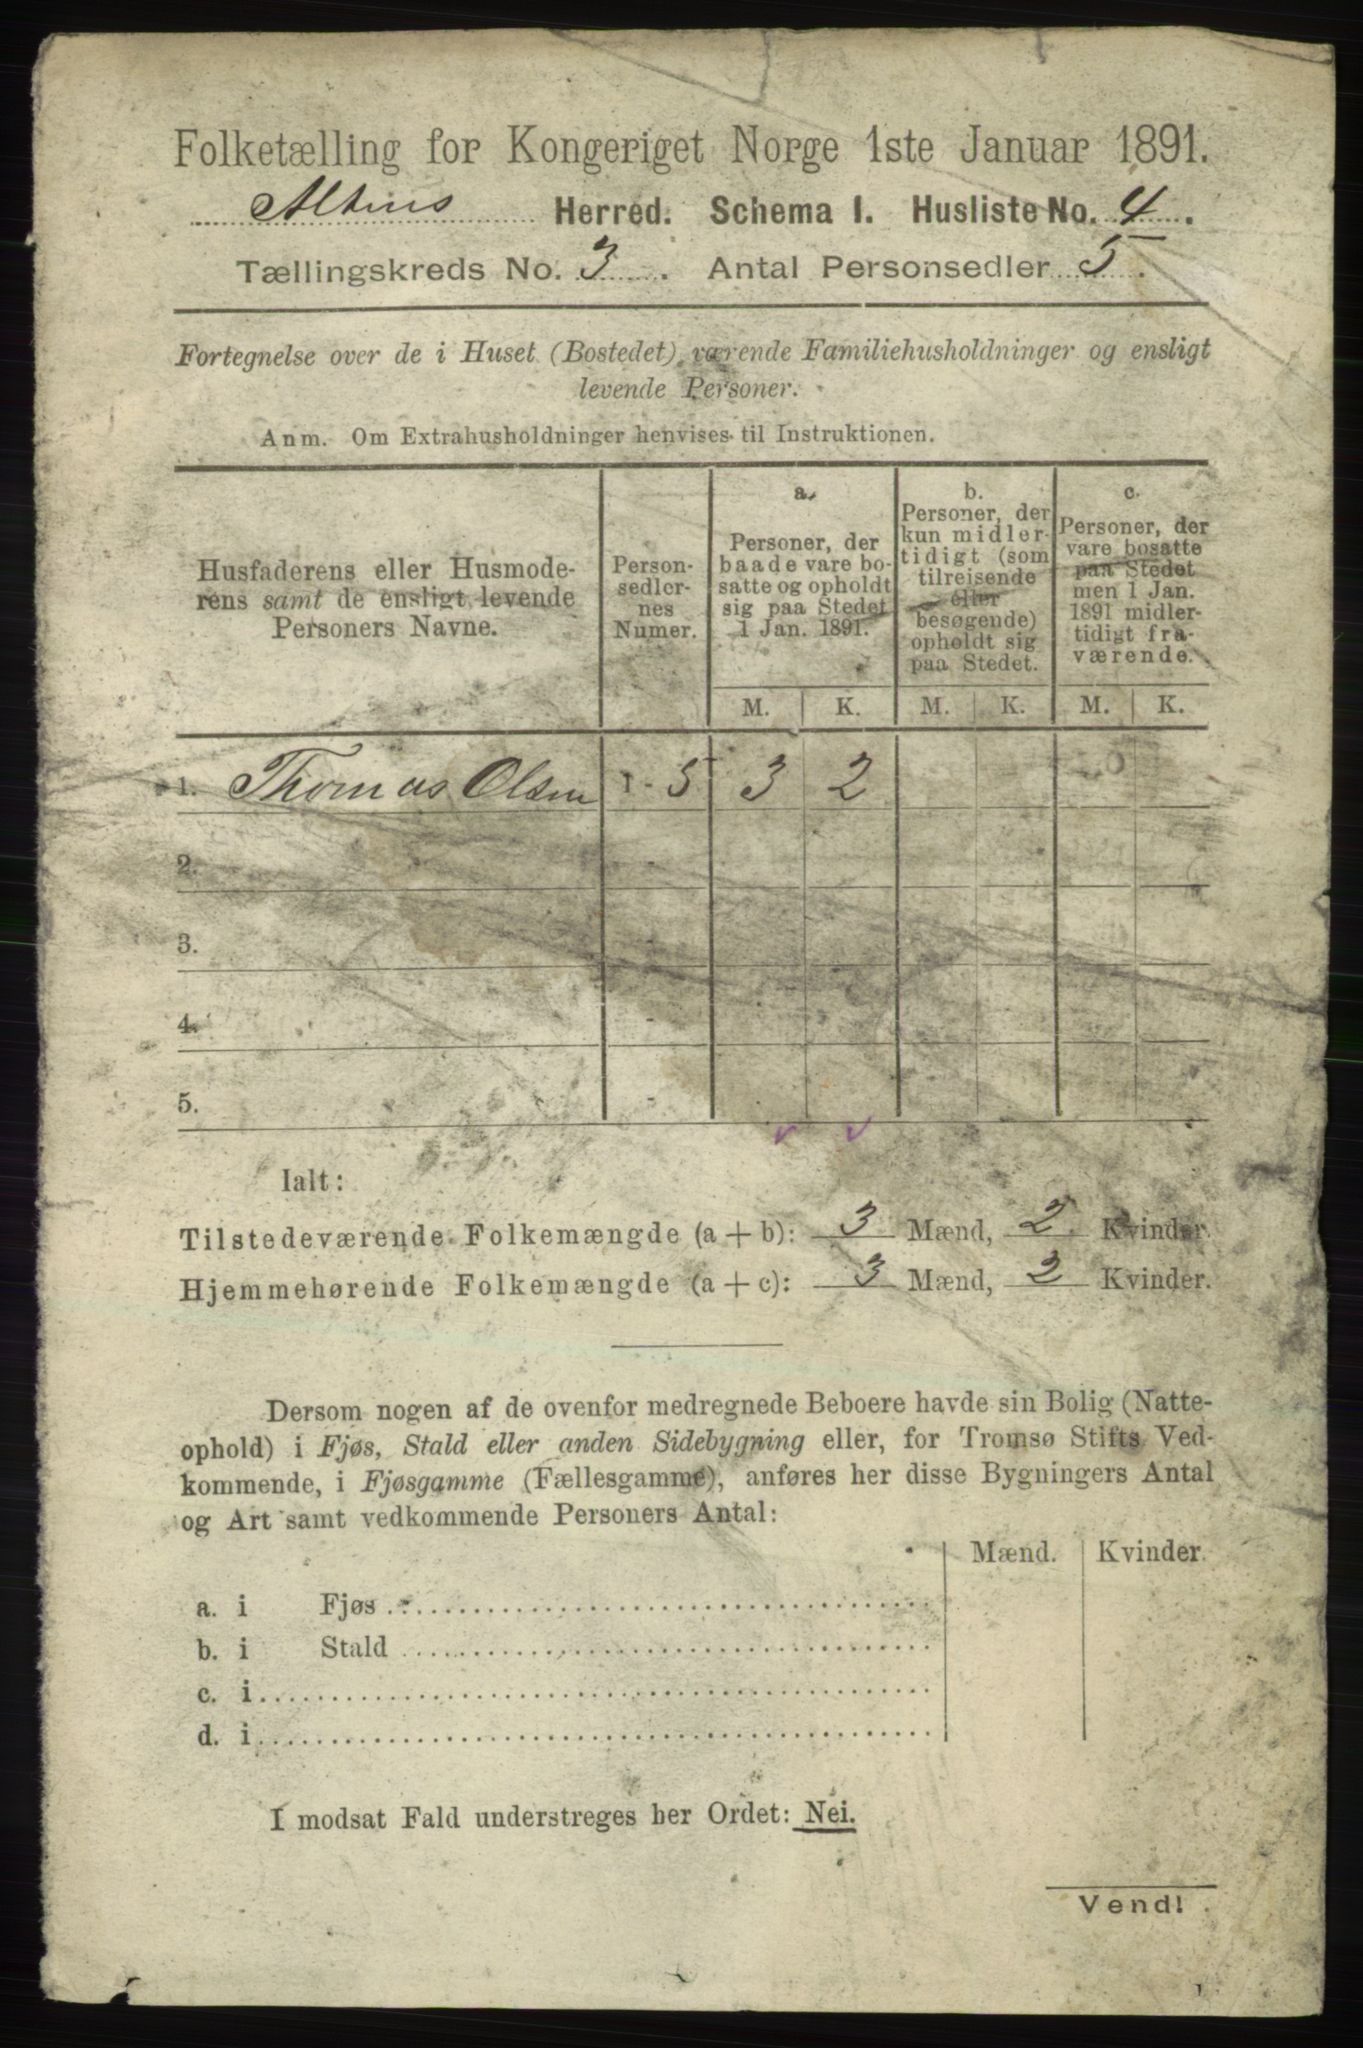 Folketælling for Kongeriget Norge 1ste Januar 1891.
Altens Herred. Schema I. Husliste No. 4.
Tællingskreds No. 3. Antal Personsedler 5.
Fortegnelse over de i Huset (Bostedet) værende Familiehusholdninger og ensligt
levende Personer.
Anm. Om Extrahusholdninger henvises til Instruktionen.
Husfaderens eller Husmode-
rens samt de ensligt levende
Personers Navne.
Person-
sedler-
nes
Numer.
a.
Personer, der
baade vare bo-
satte og opholdt
sig paa Stedet
1 Jan. 1891.
b.
Personer, der
kun midler-
tidigt (som
tilreisende
eller
besøgende)
opholdt sig
paa Stedet.
c.
Personer, der
vare bosatte
paa Stedet
men 1 Jan.
1891 midler-
tidigt fra-
værende.
M. K. M. K. M. K.
1. Thomas Olsen 1-5 3 2
2.
3.
4.
5.
Ialt:
Tilstedeværende Folkemængde (a + b): 3 Mænd, 2 Kvinder.
Hjemmehørende Folkemængde (a + c): 3 Mænd, 2 Kvinder.
Dersom nogen af de ovenfor medregnede Beboere havde sin Bolig (Natte-
ophold) i Fjøs, Stald eller anden Sidebygning eller, for Tromsø Stifts Ved-
kommende, i Fjøsgamme (Fællesgamme), anføres her disse Bygningers Antal
og Art samt vedkommende Personers Antal:
Mænd. Kvinder.
a. i Fjøs
b. i Stald
c. i
d. i
I modsat Fald understreges her Ordet: Nei.
Vend!